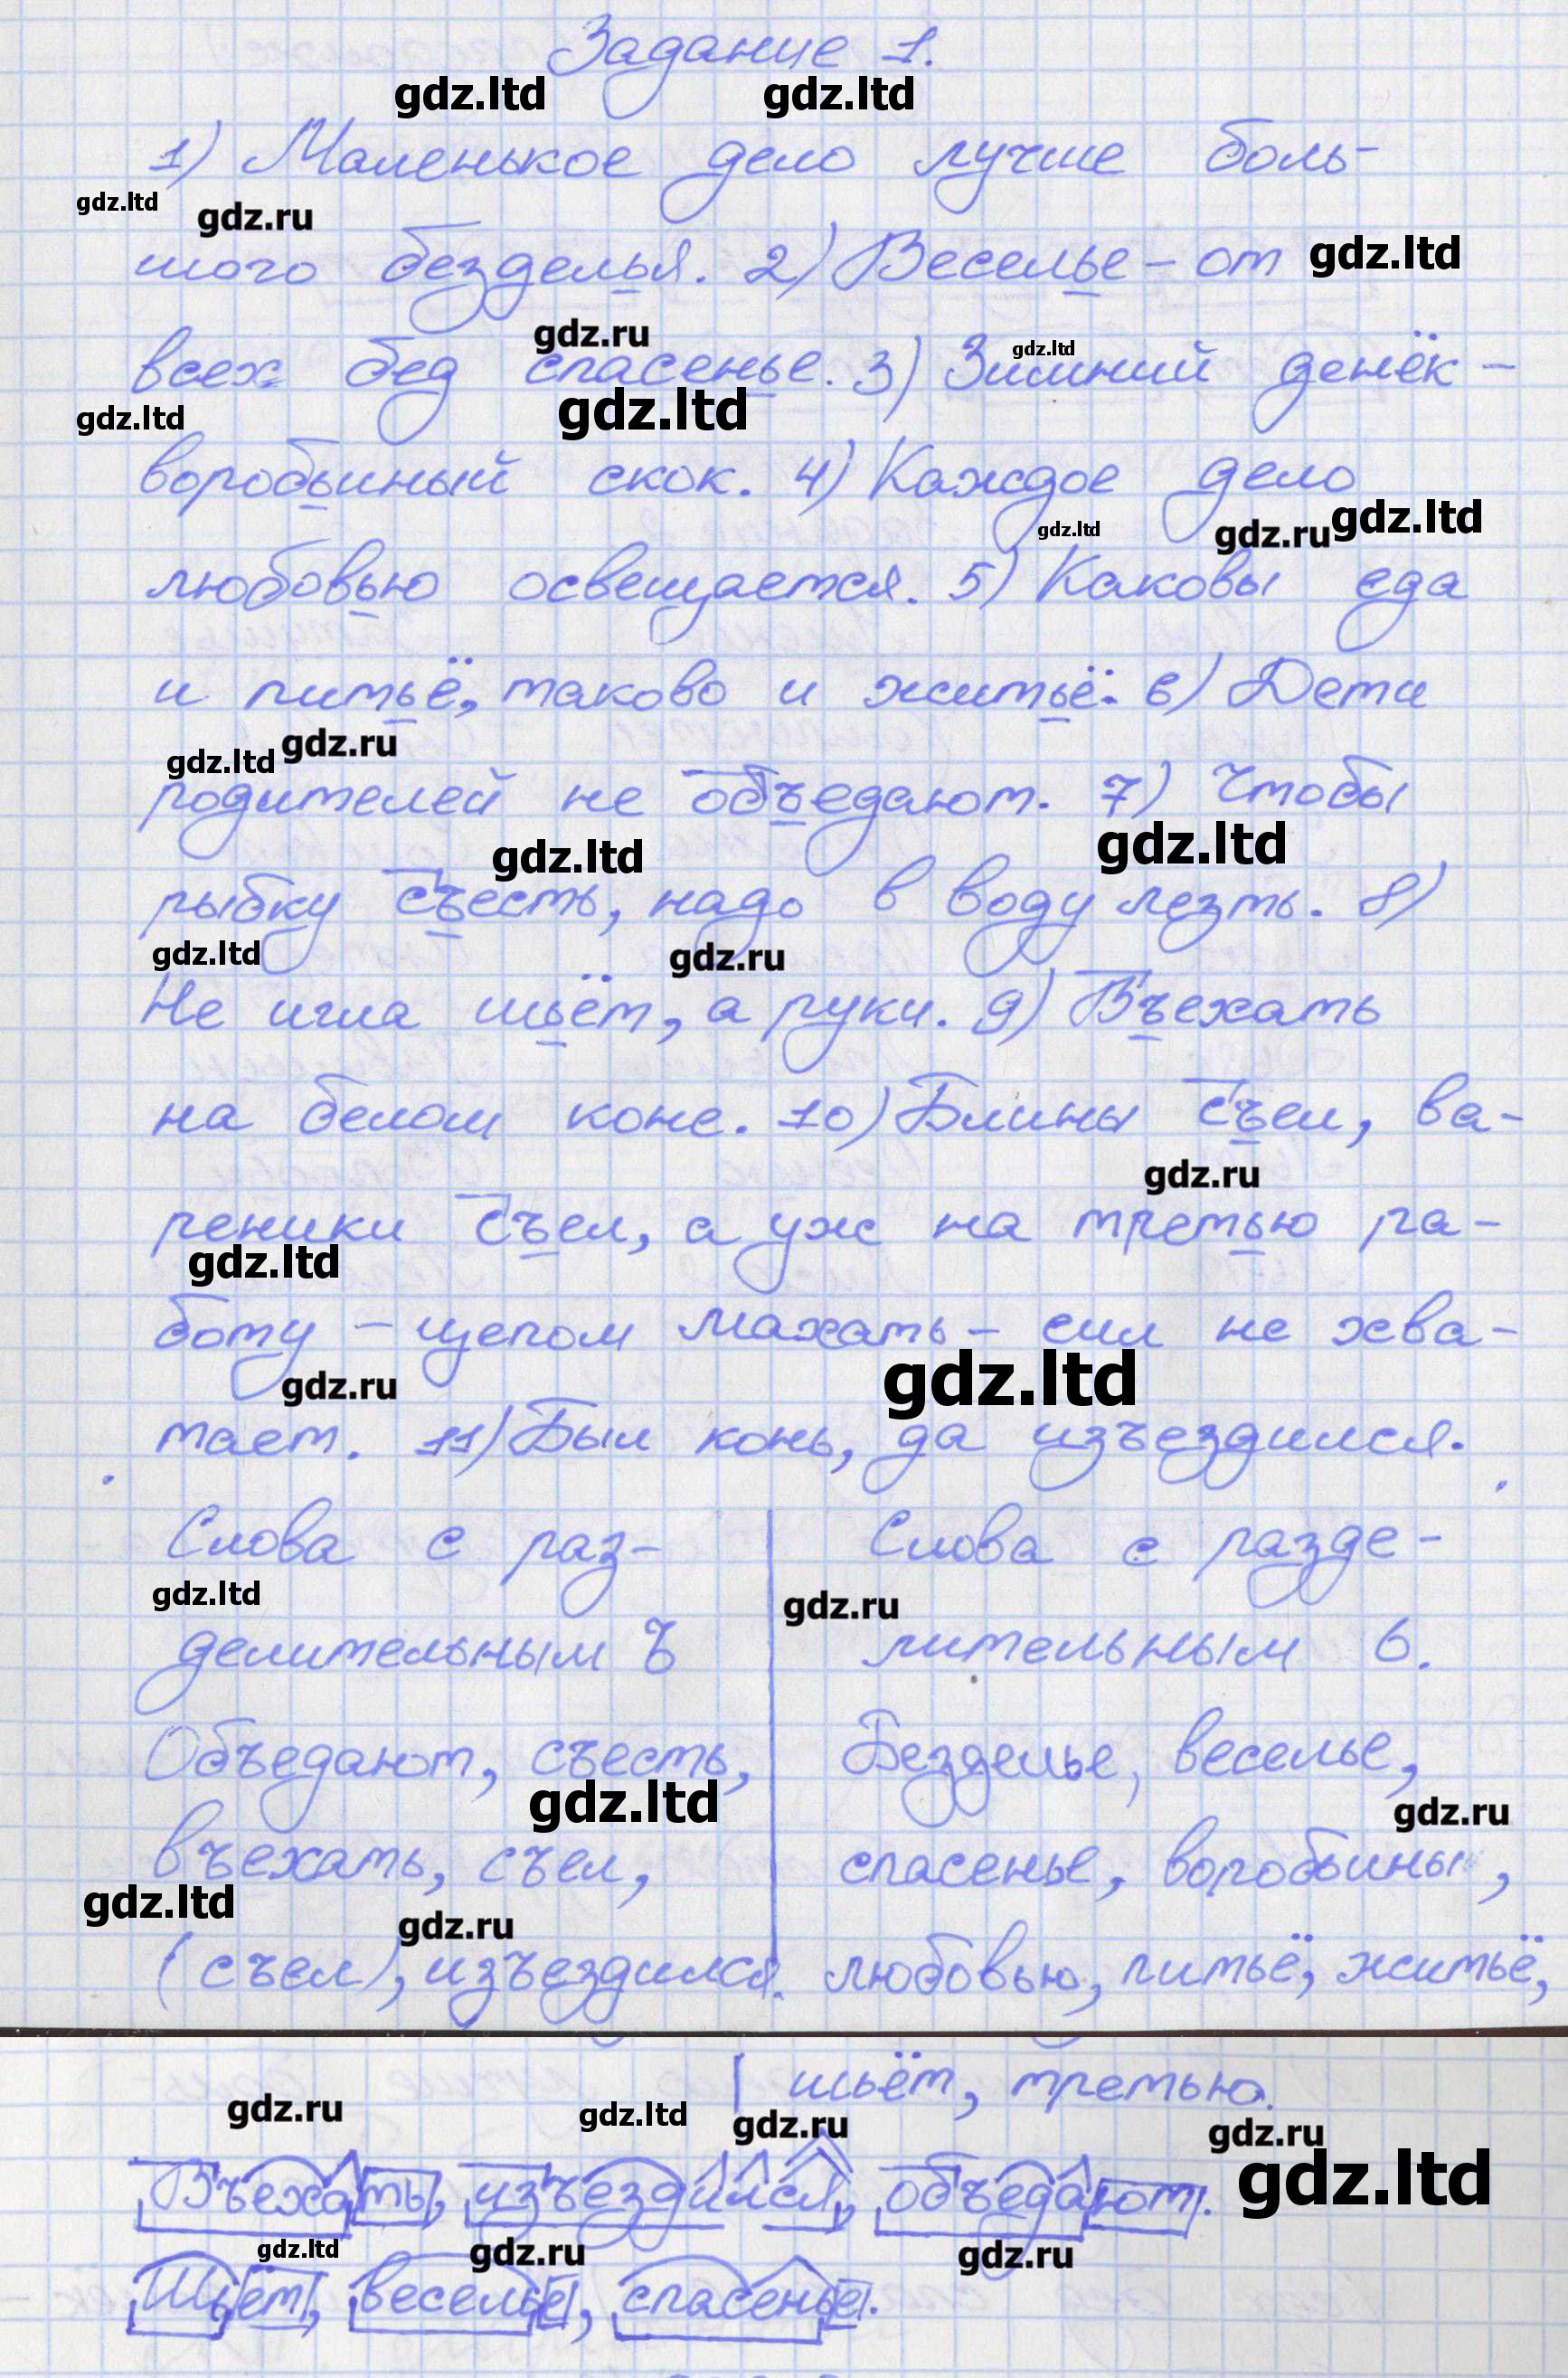 Задание 1.
gdz.ltd gdz.ltd
1) Маленькое дело лучше боль-
gdz.ltd gdz.ru
шого безделья. 2) Веселье - от gdz.ltd
gdz.ru gdz.ltd
всех бед спасенье. 3) Зимний денёк -
gdz.ltd gdz.ltd
воробьиный скок. 4) Каждое дело
gdz.ltd gdz.ru gdz.ltd
любовью освещается. 5) Каковы еда
и питьё, таково и житьё. 6) Дети
gdz.ltd gdz.ru
родителей не объедают. 7) Чтобы
gdz.ltd gdz.ltd
рыбку съесть, надо в воду лезть. 8)
gdz.ltd gdz.ru
Не игла шьёт, а руки. 9) Въехать
на белом коне. 10) Блины съел, ва-
gdz.ru
реники съел, а уж на третью ра-
gdz.ltd
боту - цепом махать - сил не хва-
gdz.ru gdz.ltd
тает. 11) Был конь, да изъездился.
Слова с раз-
делительным ъ
gdz.ltd
Объедают, съесть,
gdz.ltd
въехать, съел,
gdz.ltd gdz.ru
(съел), изъездился.
Слова с разде-
gdz.ru
лительным ь.
Безделье, веселье,
gdz.ru
спасенье, воробьины,
любовью, питьё, житьё,
шьёт, третью.
gdz.ru gdz.ltd gdz.ru gdz.ru
Въехать, изъездился, объедают. gdz.ltd
gdz.ltd gdz.ru gdz.ru
Шьёт, веселье, спасенье.